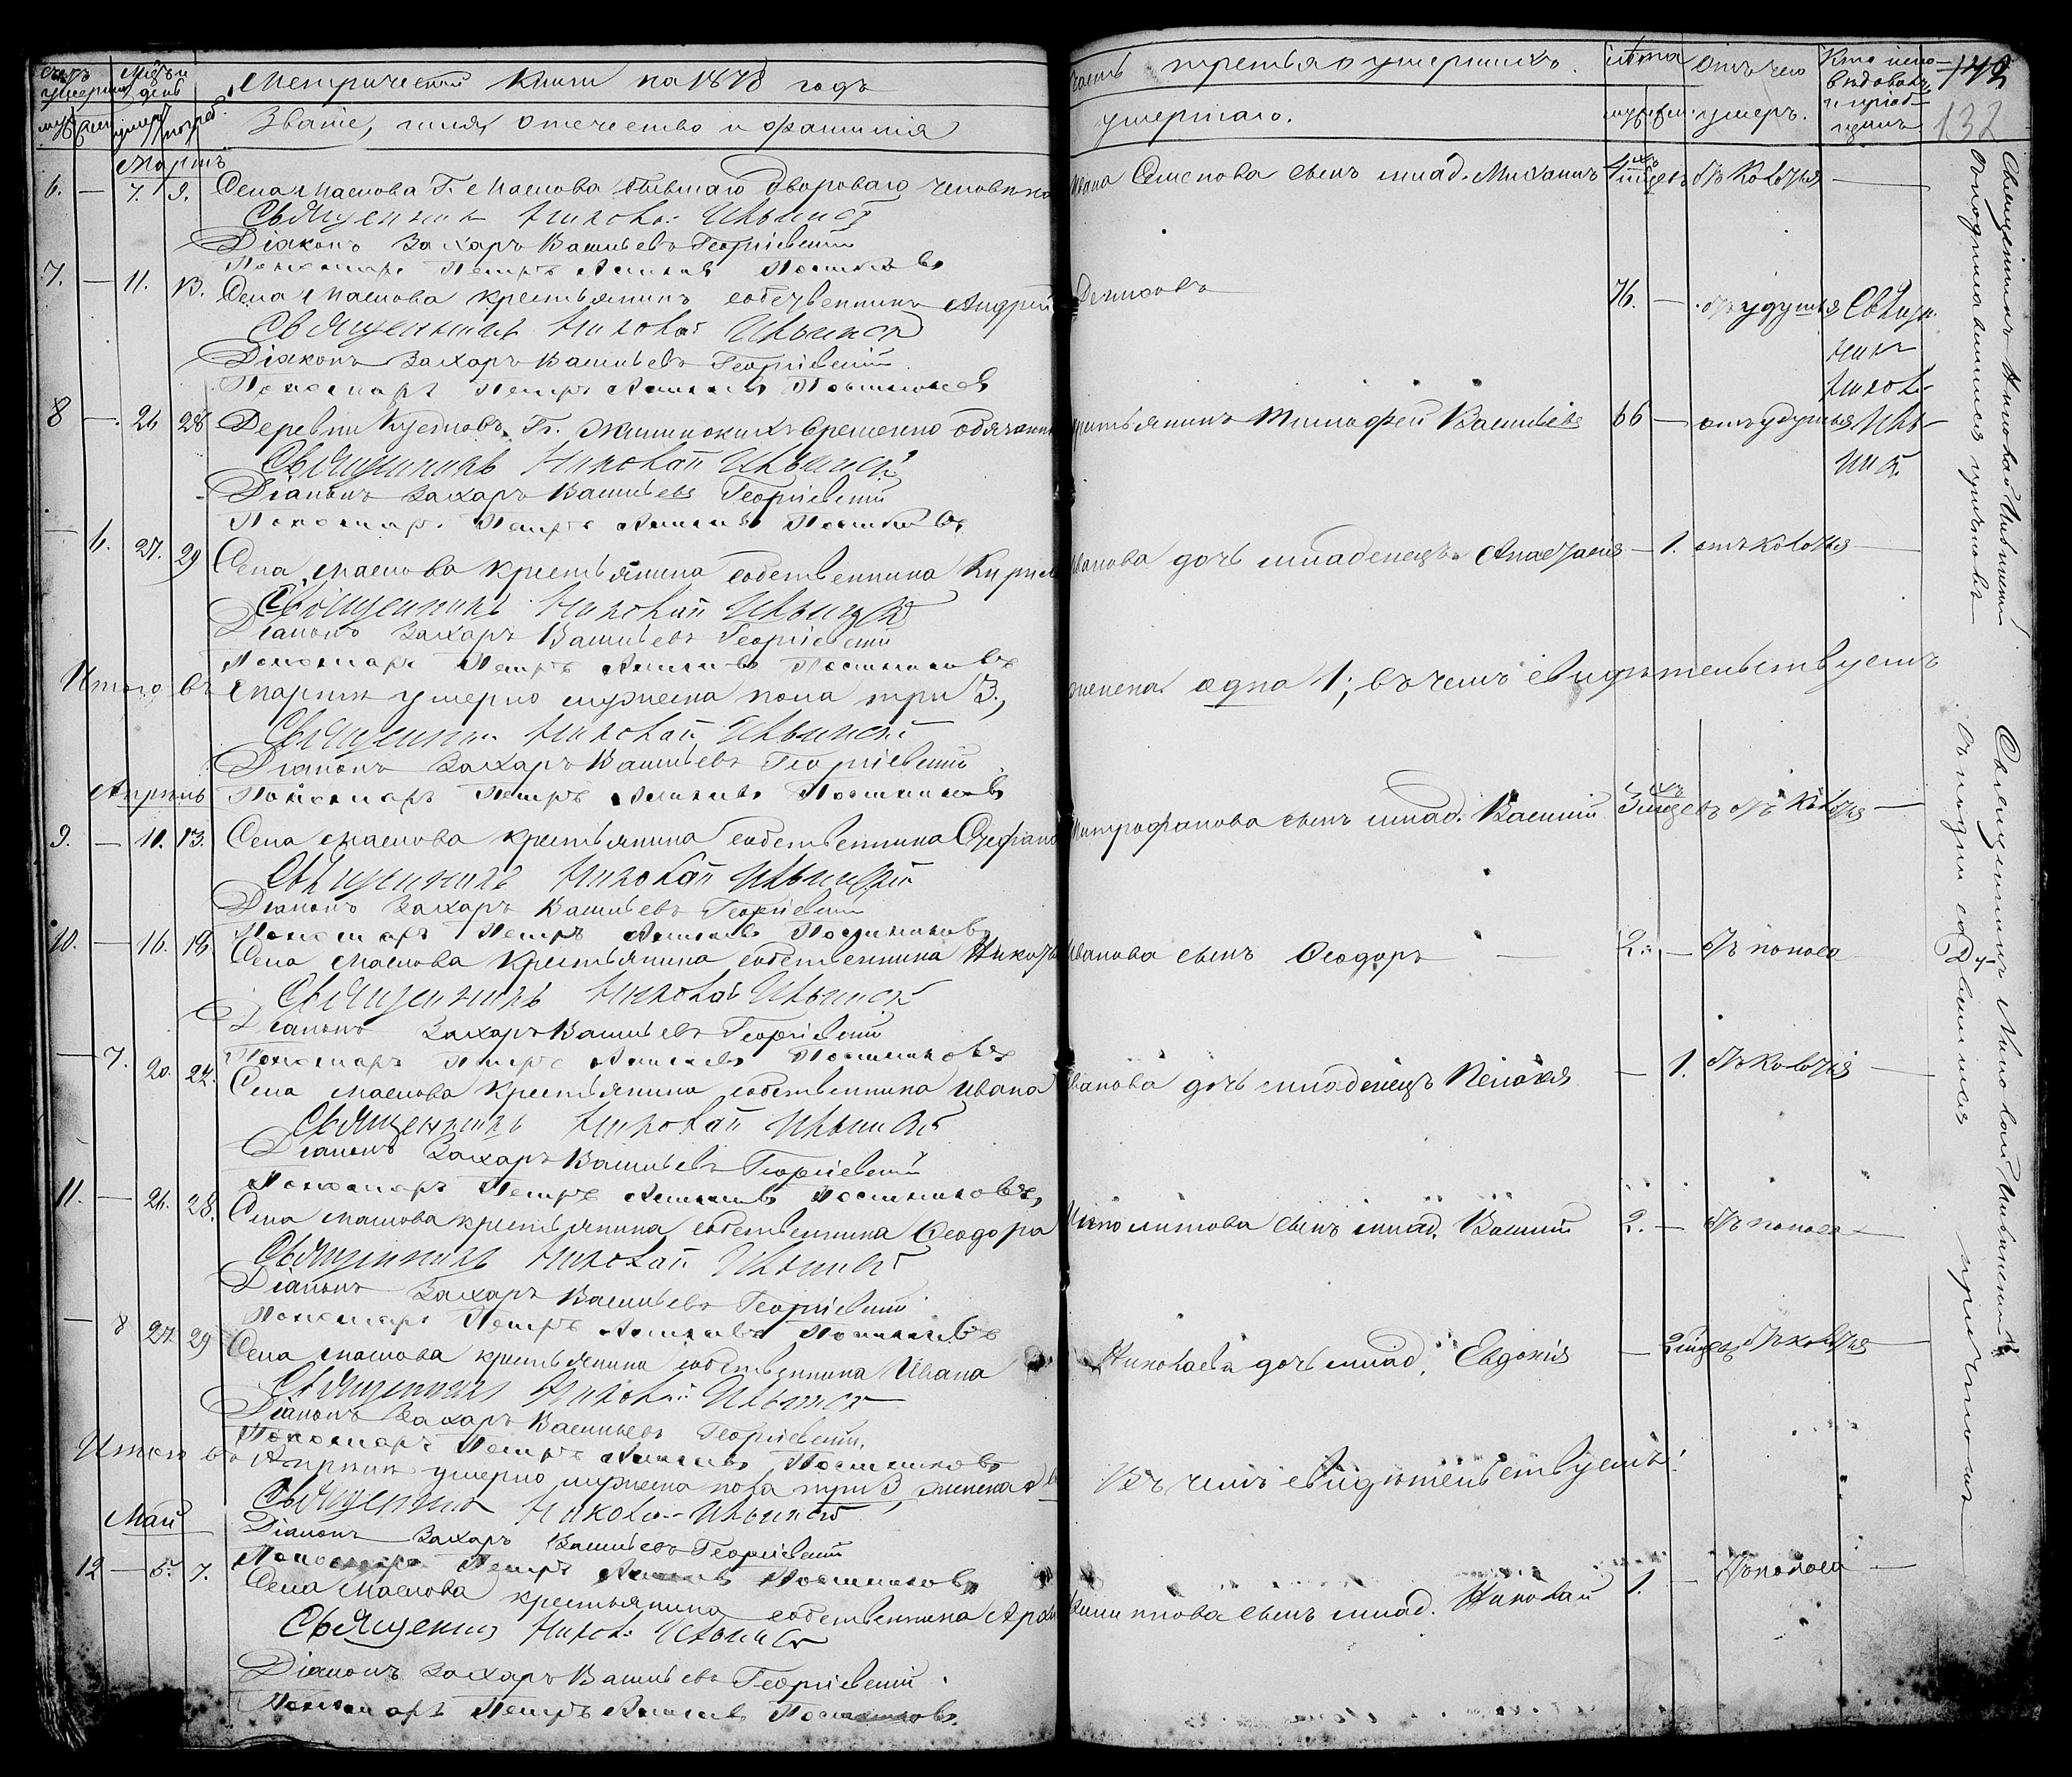 Счетъ умершихъ
Мѣс. и день
Метрической Книги на 1878 годъ
часть третья о умершихъ.
лѣта
Отъ чего
Кто испо-
142
муж
жен
умер
погреб
Званіе, имя, отечество и фамилія
умершаго.
муж
жен
умеръ.
вѣдовалъ
и пріоб-
щалъ
132
Мартъ
6. — 7. 9. Села Маслова Г. Маслова бывшаго двороваго человѣка Ивана Семенова сынъ млад. Михаилъ 4 мцевъ отъ коклюша —
Священникъ Николай Ильинскій
Діаконъ Захаръ Васильевъ Георгіевскій
Пономарь Петръ Постниковъ
7. — 11. 13. Села Маслова крестьянинъ собственникъ Андрей Денисовъ 76. — отъ удушья Священ.
Священникъ Николай Ильинскій
никъ
Діаконъ Захаръ Васильевъ Георгіевскій
Никол.
Пономарь Петръ Постниковъ
8 — 26 28 Деревни временно обязанный крестьянинъ Тимофей Васильевъ 66 — отъ удушья Иль-
Священникъ Николай Ильинскій
инск.
Діаконъ Захаръ Васильевъ Георгіевскій
Пономарь Петръ Постниковъ
— 6. 27. 29 Села Маслова крестьянина собственника Кирила Иванова дочь младенецъ Анастасія — 1. отъ коклюша —
Священникъ Николай Ильинскій
Діаконъ Захаръ Васильевъ Георгіевскій
Пономарь Петръ Постниковъ
Итого въ Мартѣ умерло мужеска пола три 3, женска одна 1; въ чемъ свидѣтельствуемъ
Священникъ Николай Ильинскій
Діаконъ Захаръ Васильевъ Георгіевскій
Апрѣль Пономарь Петръ Постниковъ
9. — 11. 13. Села Маслова крестьянина собственника Стефана Митрофанова сынъ млад. Василій 3 мцевъ отъ коклюша —
Священникъ Николай Ильинскій
Діаконъ Захаръ Васильевъ Георгіевскій
Пономарь Петръ Постниковъ
10. — 16. 18. Села Маслова крестьянина собственника Иванова сынъ Ѳеодоръ — 2. — отъ поноса
Священникъ Николай Ильинскій
Діаконъ Захаръ Васильевъ Георгіевскій
Пономарь Петръ Постниковъ
— 7. 20. 22. Села Маслова крестьянина собственника Ивана Иванова дочь младенецъ Пелагія — 1. отъ коклюша —
Священникъ Николай Ильинскій
Діаконъ Захаръ Васильевъ Георгіевскій
Пономарь Петръ Постниковъ
11. — 26. 28. Села Маслова крестьянина собственника Ѳеодора Ипполитова сынъ млад. Василій 2. — отъ поноса —
Священникъ Николай Ильинскій
Діаконъ Захаръ Васильевъ Георгіевскій
Пономарь Петръ Постниковъ
— 8 27. 29 Села Маслова крестьянина собственника Ивана Николаева дочь млад. Евдокія — 2 мцевъ отъ коклюша —
Священникъ Николай Ильинскій
Діаконъ Захаръ Васильевъ Георгіевскій
Пономарь Петръ Постниковъ
Итого въ Апрѣлѣ умерло мужеска пола три 3 женска Въ чемъ свидѣтельствуемъ:
Священникъ Николай Ильинскій
Май Діаконъ Захаръ Васильевъ Георгіевскій
Пономарь Петръ Постниковъ
12 — 5. 7. Села Маслова крестьянина собственника сынъ млад. Николай 1. — отъ поноса —
Священникъ Никол. Ильинскій
Діаконъ Захаръ Васильевъ Георгіевскій
Пономарь Петръ Постниковъ.
Священникъ Николай Ильинскій
Священникъ Николай Ильинскій
съ причтомъ